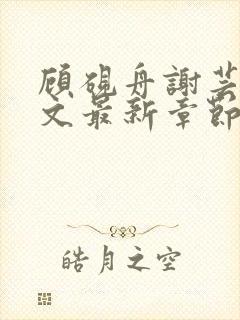 顾砚舟謝芸
文最新章節
皓月之空